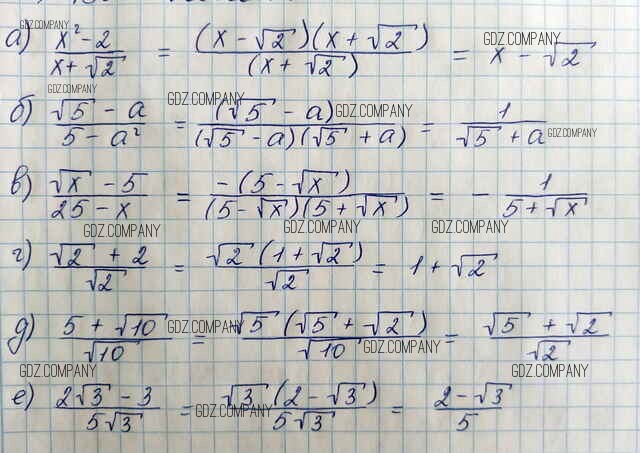 GDZ.COMPANY
а) (x² - 2)/(x + √2) = ((x - √2)(x + √2))/(x + √2) = x - √2
GDZ.COMPANY
GDZ.COMPANY GDZ.COMPANY
б) (√5 - a)/(5 - a²) = (√5 - a)/((√5 - a)(√5 + a)) = 1/(√5 + a)
GDZ.COMPANY GDZ.COMPANY
в) (√x - 5)/(25 - x) = (-(5 - √x))/((5 - √x)(5 + √x)) = - 1/(5 + √x)
GDZ.COMPANY GDZ.COMPANY GDZ.COMPANY
г) (√2 + 2)/√2 = (√2(1 + √2))/√2 = 1 + √2
д) (5 + √10)/√10 = (√5(√5 + √2))/√10 = (√5 + √2)/√2
GDZ.COMPANY GDZ.COMPANY
GDZ.COMPANY GDZ.COMPANY
е) (2√3 - 3)/(5√3) = (√3(2 - √3))/(5√3) = (2 - √3)/5
GDZ.COMPANY